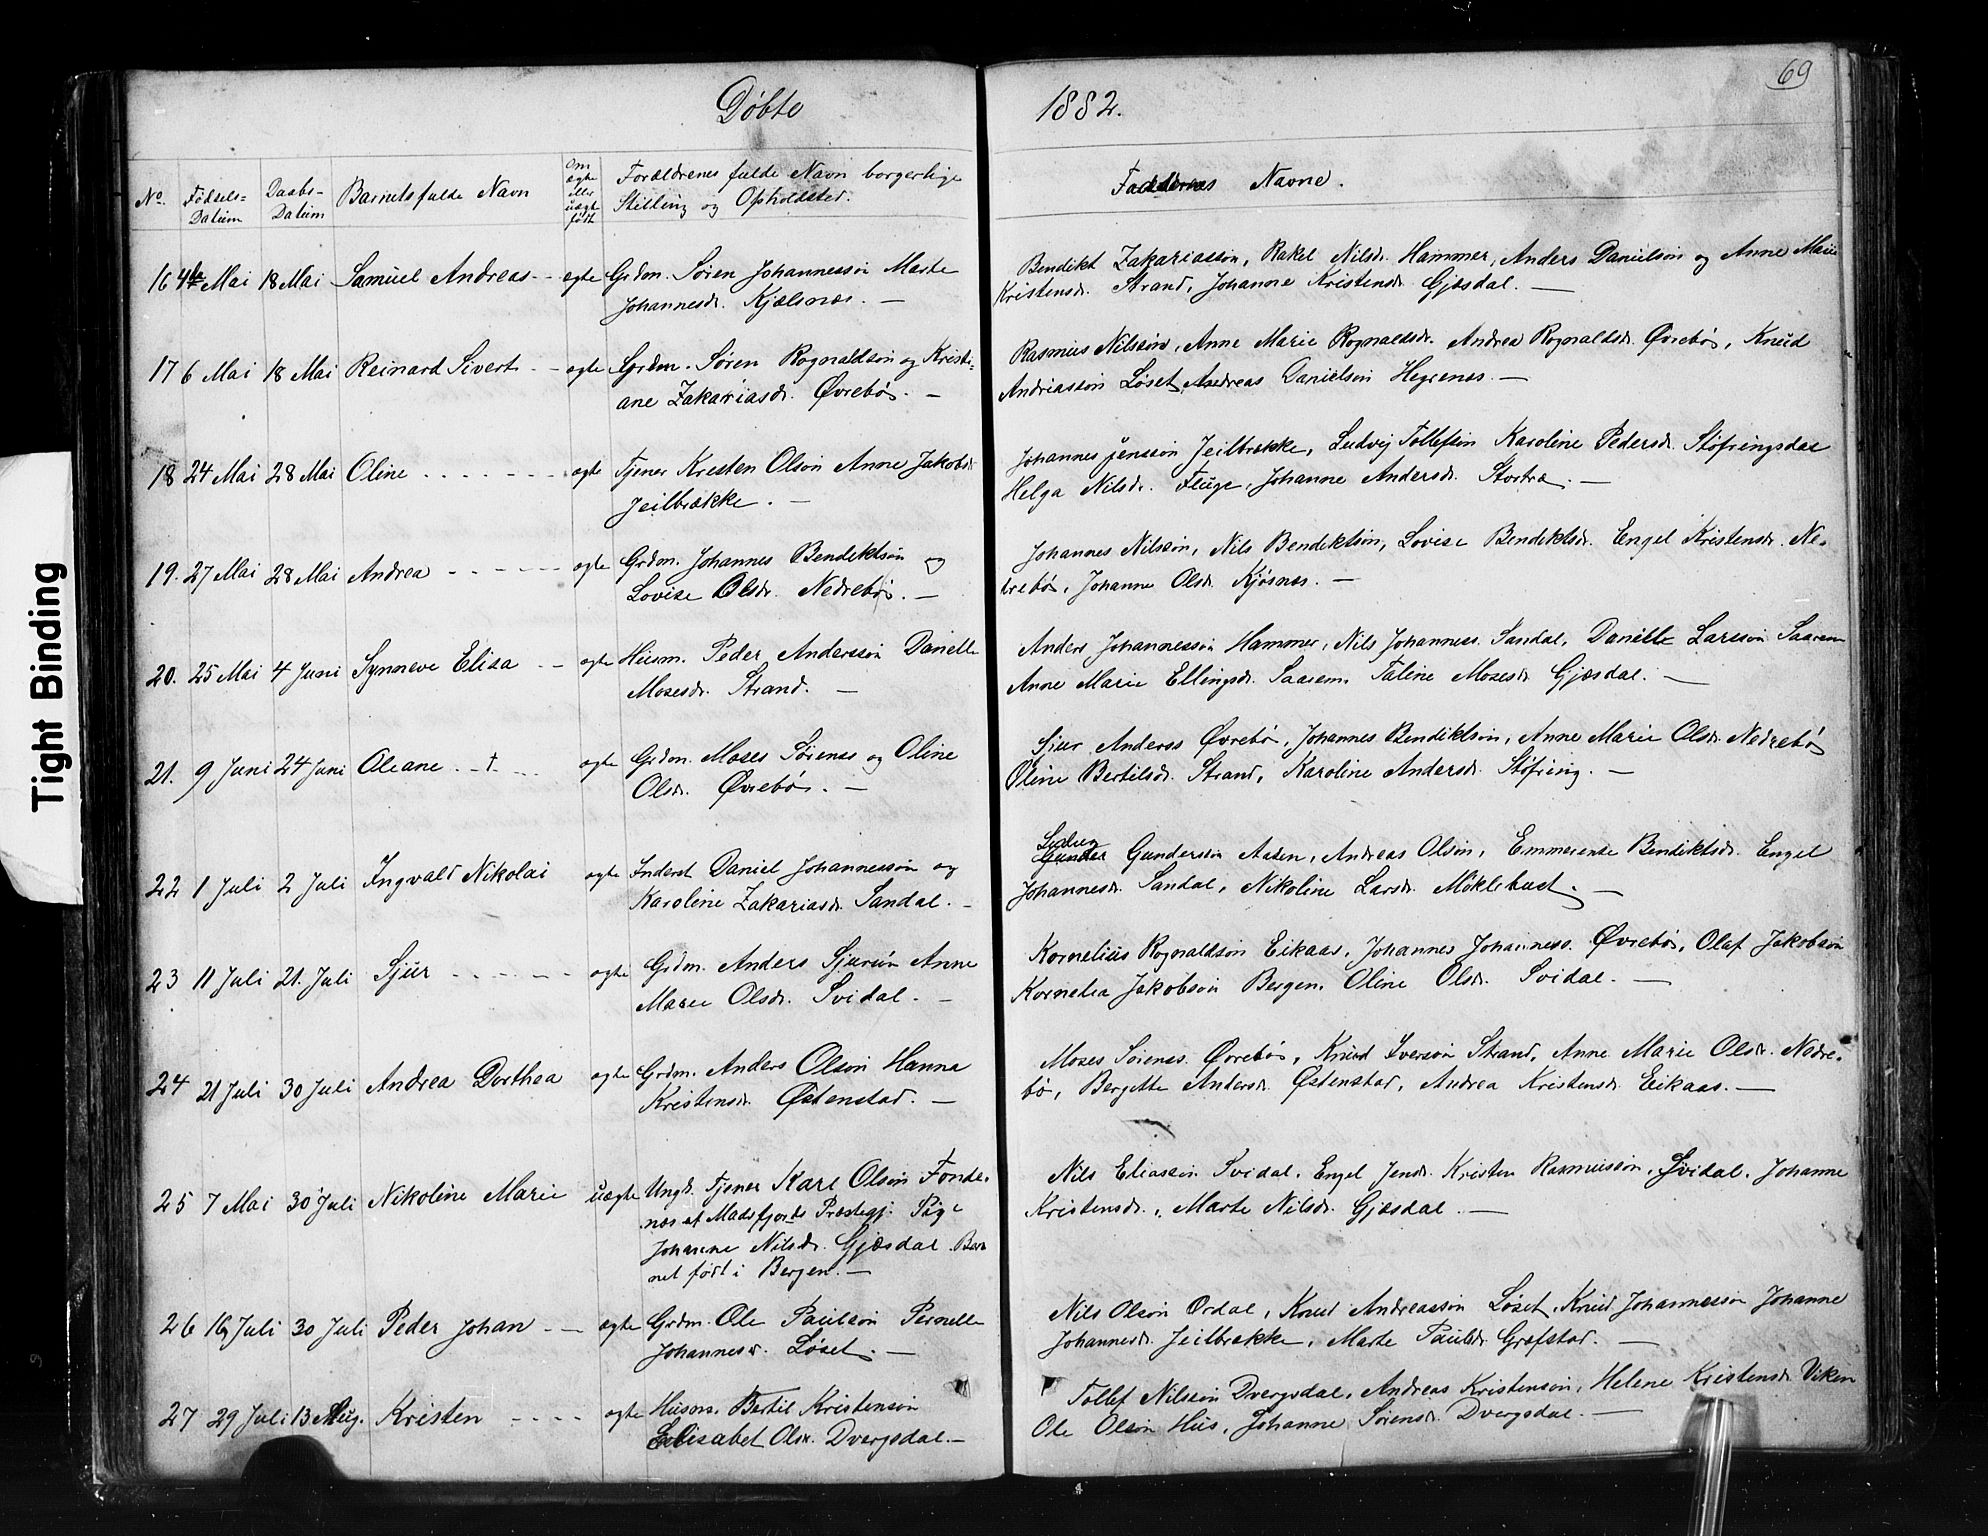 Døbte
1882.
69
No.
Fødsels-
Datum
Daabs-
Datum
Barnets fulde Navn
Om
ægte
eller
uægte
født
Forældrenes fulde Navn borgerlige
Stilling og Opholdsted.
Faddernes Navne.
16 4de Mai 18 Mai Samuel Andreas - ægte Grdm. Søren Johannessøn Marte
Johannesdr. Kjælsnæs. —
Bendikt Zakariassøn, Rakel Nilsdr. Hammer, Anders Danielsøn og Anne Marie
Kristensdr. Strand, Johanne Kristensdr. Gjæsdal. —
17 6 Mai 18 Mai Reinard Sivert - ægte Grdm. Søren Rognaldsøn og Kristi-
ane Zakariasdr. Øvrebø. —
Rasmus Nilssøn, Anne Marie Rognaldsdr. Andrea Rognaldsdr. Øvrebø, Knud
Andreassøn Løset, Andreas Danielsøn Hegrenæs. —
18 24 Mai 28 Mai Oline - - - - - - ægte Tjener Kresten Olsøn Anne Jakobsdr
Jeilbrække. —
Johannes Jenssøn Jeilbrække, Ludvig Tollefsøn Karoline Pedersdr. Støfringsdal
Helga Nilsdr. Fluge, Johanne Andersdr. Stortræ. —
19. 27 Mai 28 Mai Andrea - - - - - ægte Grdm. Johannes Bendiktsøn og
Lovise Olsdr. Nedrebø. —
Johannes Nilssøn, Nils Bendiktsøn, Lovise Bendiktsdr. Engel Kristensdr. Ne-
drebø, Johanne Olsdr. Kjøsnæs. —
20. 25 Mai 4 Juni Synneve Elisa - - ægte Husm. Peder Anderssøn Danelle
Mosesdr. Strand. —
Anders Johannessøn Hammer, Nils Johanness. Sandal, Danielle Larssøn Saarem
Anne Marie Ellingsdr. Saarem, Taline Mosesdr Gjæsdal. —
21. 9 Juni 24 Juni Oleane - † - - ægte Grdm. Moses Sørens og Oline
Olsdr. Øvrebø. —
Sjur Anderss Øvrebø, Johannes Bendiktsøn, Anne Marie Olsdr. Nedrebø
Oline Bertilsdr. Strand, Karoline Andersdr. Støfring. —
Ludvig
22 1 Juli 2 Juli Ingvald Nikolai ægte Inderst Daniel Johannessøn og
Karoline Zakariasdr. Sandal. -
Gunder Gundersøn Aasen, Andreas Olsøn, Emmerense Bendiktsdr. Engel
Johannesdr. Sandal, Nikoline Larsdr. Møklebust. —
23 11 Juli 21. Juli Sjur - - - - - - ægte Grdm. Anders Sjursøn Anne
Marie Olsdr. Svidal. —
Kornelius Rognaldsøn Eikaas, Johannes Johanness. Øvrebø, Olaf Jakobsøn
Kornelia Jakobsøn Bergen. Oline Olsdr. Svidal. —
24 21 Juli 30 Juli Andrea Dorthea ægte Grdm. Anders Olsøn Hanna
Kristensdr. Østenstad. —
Moses Sørenss. Øvrebø, Knud Iversøn Strand, Anne Marie Olsdr. Nedre-
bø, Bergitte Andersdr. Østenstad, Andrea Kristensdr. Eikaas. —
25 7 Mai 30 Juli Nikoline Marie uægte Ungk. Tjener Karl Olsøn Fonde-
næs af Madsfjords Præstegj. Pige
Johanne Nilsdr. Gjæsdal. Bar
net født i Bergen. —
Nils Eliassøn Svidal, Engel Jensdr. Kristen Rasmussøn, Svidal. Johanne
Kristensdr., Marte Nilsdr. Gjæsdal. —
26 16 Juli 30 Juli Peder Johan - - ægte Grdm. Ole Paulsøn Pernelle
Johannesdr. Løset. —
Nils Olsøn Ordal, Knud Andreassøn Løset, Knud Johannessøn Johanne
Johannesdr. Jeilbrække, Marte Paulsdr. Grøfstad. —
27 29 Juli 13 Aug. Kristen - - - - ægte Husm. Bertil Kristensøn
Elisabet Olsdr. Dvergsdal. —
Tollef Nilssøn Dvergsdal, Andreas Kristensøn, Helene Kristensdr Viken
Ole Olsøn Hus, Johanne Sørensdr. Dvergsdal. —
Tight Binding